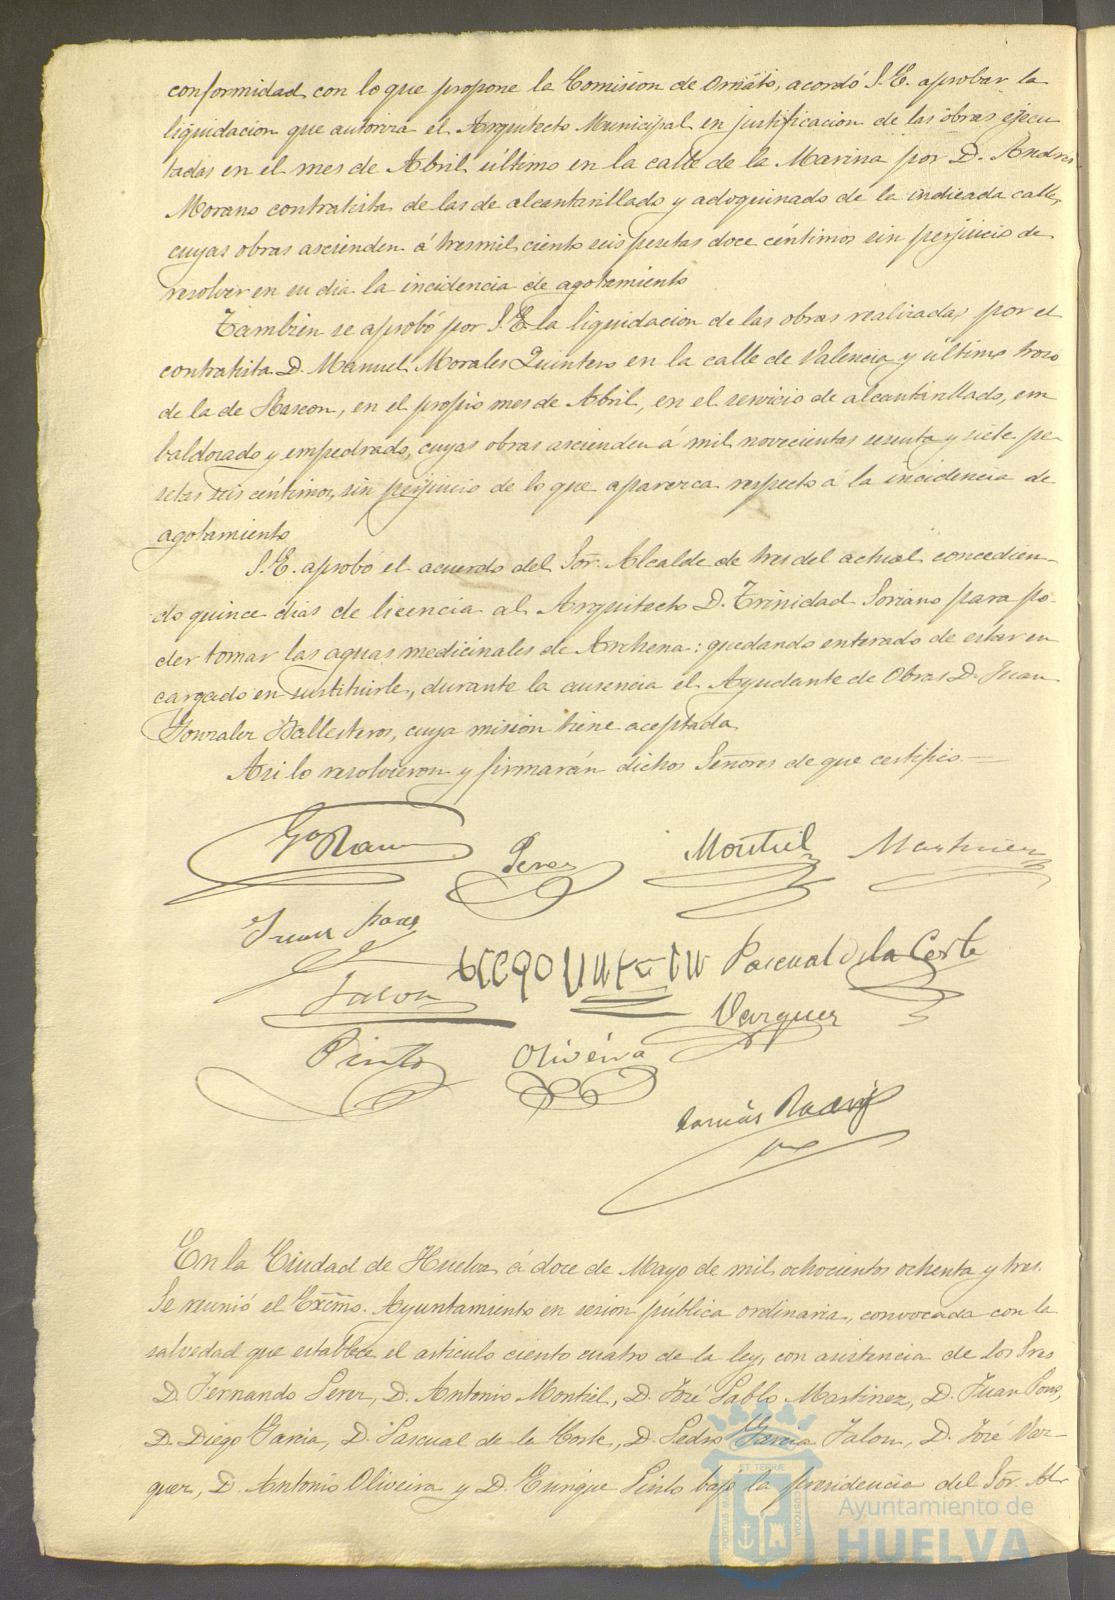 conformidad con lo que propone la Comision de Ornato, acordó S.E. aprobar la
liquidacion que autoriza el Arquitecto Municipal en justificacion de las obras ejecu
tadas en el mes de Abril último en la calle de la Marina por D. Andres
Morano contratista de las de alcantarillado y adoquinado de la indicada calle,
cuyas obras ascienden á tres mil ciento seis pesetas doce céntimos sin perjuicio de
resolver en su dia la incidencia de agotamiento
Tambien se aprobó por S.E. la liquidacion de las obras realizadas por el
contratista D. Manuel Morales Quintero en la calle de Valencia y último trozo
de la de Rascon, en el propio mes de Abril, en el servicio de alcantarillado, em
baldosado y empedrado, cuyas obras ascienden á mil novecientas sesenta y siete pe
setas seis céntimos, sin perjuicio de lo que aparezca respecto á la incidencia de
agotamiento
S.E. aprobó el acuerdo del Sor. Alcalde de tres del actual concedien-
do quince dias de licencia al Arquitecto D. Trinidad Soriano para po-
der tomar las aguas medicinales de Archena: quedando enterado de estar en
cargado en sustituirle, durante la ausencia el Ayudante de Obras D. Juan
Gonzalez Ballesteros, cuya mision tiene aceptada
Asi lo resolvieron y firmarán dichos Señores de que certifico.=
Perez Montiel Martinez
Juan Pons
Jalon Pascual de la Corte
Vazquez
Pinto Oliveira
En la Ciudad de Huelva á doce de Mayo de mil ochocientos ochenta y tres.
Se reunió el Excmo. Ayuntamiento en sesion pública ordinaria, convocada con la
salvedad que establece el articulo ciento cuatro de la ley, con asistencia de los Sres
D. Fernando Perez, D. Antonio Montiel, D. José Pablo Martinez, D. Juan Pons,
D. Diego Garcia, D. Pascual de la Corte, D. Pedro Garcia Jalon, D. José Vaz-
quez, D. Antonio Oliveira y D. Enrique Pinto bajo la presidencia del Sor. Al-
Ayuntamiento de
HUELVA